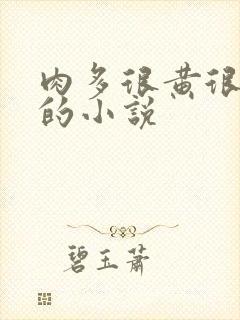 肉多很黄很
的小说
碧玉萧